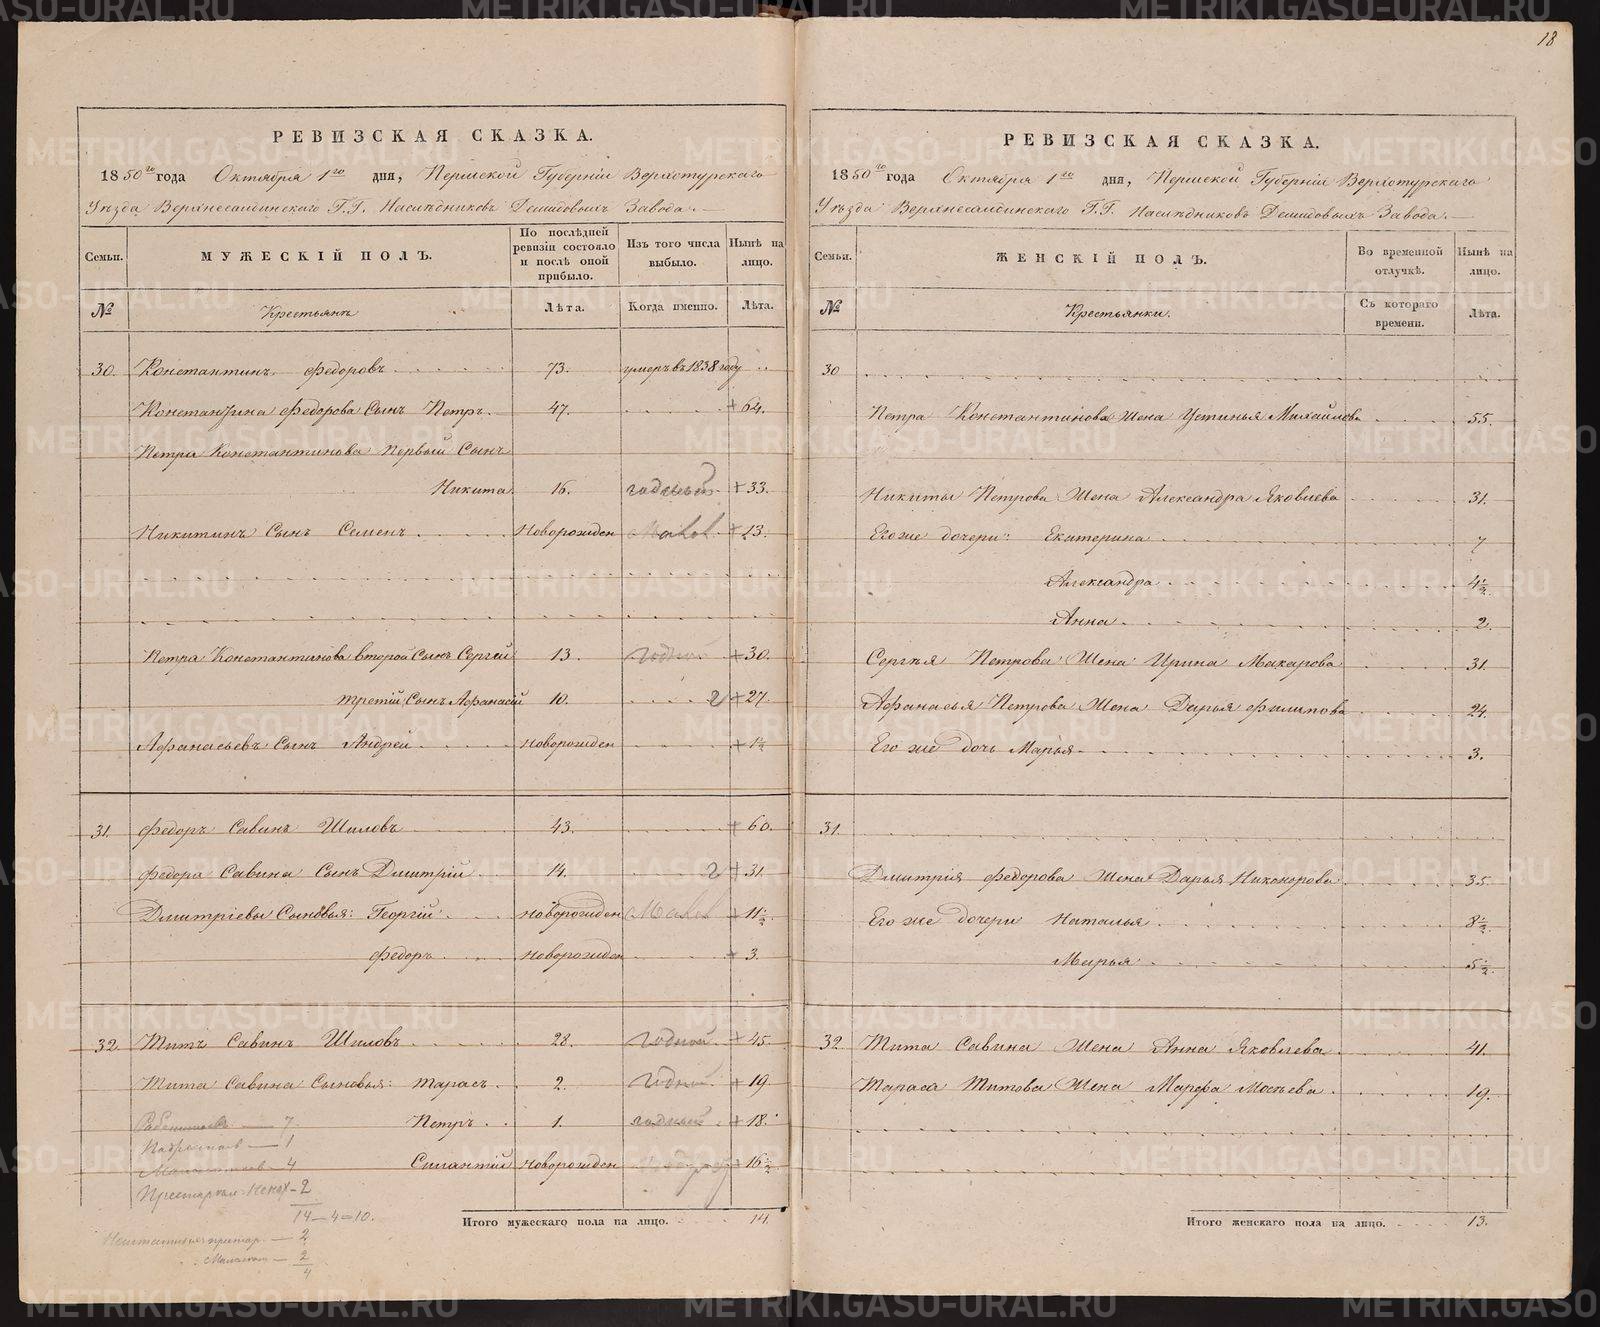 18
РЕВИЗСКАЯ СКАЗКА.
1850го года Октября 1го дня, Пермской Губернiи Верхотурскаго
Уѣзда Верхнесалдинскаго Г.Г. Наслѣдниковъ Демидовыхъ Завода.
Семьи. МУЖЕСКIЙ ПОЛЪ. По послѣдней ревизiи состояло и послѣ оной прибыло. Изъ того числа выбыло. Нынѣ на лицо.
№ Крестьянъ Лѣта. Когда именно. Лѣта.
30. Константинъ Федоровъ 73. умеръ въ 1838 году
Константина Федорова Сынъ Петръ. 47. + 64.
Петра Константинова Первый Сынъ
Никита 16. годный + 33.
Никитинъ Сынъ Семенъ. Новорожден + 13.
Петра Константинова второй Сынъ Сергей 13. + 30.
третiй Сынъ Афанасiй 10. 2 + 27.
Афанасьевъ Сынъ Андрей новорожден + 1½
31. Федоръ Савинъ Шиловъ 43. + 60.
Федора Савина Сынъ Дмитрiй 14. 2 + 31.
Дмитрiевы Сыновья: Георгiй новорожден + 11½.
Федоръ новорожден + 3.
32. Титъ Савинъ Шиловъ 28. Годной + 45.
Тита Савина Сыновья: Тарасъ 2. Годной + 19
7 Петръ 1. годный + 18.
1
4 Силантiй Новорожден + 16½
2
14—4=10.
2
2
4
Итого мужескаго пола на лицо. 14.
РЕВИЗСКАЯ СКАЗКА.
1850го года Октября 1го дня, Пермской Губернiи Верхотурскаго
Уѣзда Верхнесалдинскаго Г.Г. Наслѣдниковъ Демидовыхъ Завода.
Семьи. ЖЕНСКIЙ ПОЛЪ. Во временной отлучкѣ. Нынѣ на лицо.
№ Крестьянки. Съ котораго времени. Лѣта.
30
Петра Константинова Жена Устинья Михайлова 55.
Никиты Петрова Жена Александра Яковлева 31.
Его же дочери: Екатерина 7
Александра 4½.
Анна 2.
Сергѣя Петрова Жена Ирина Макарова 31.
Афанасья Петрова Жена Дарья Филипова 24.
Его же дочь Марья 3.
31.
Дмитрiя Федорова Жена Дарья Никонорова 35.
Его же дочери Наталья 8½.
Марья 5½.
32. Тита Савина Жена Анна Яковлева 41.
Тараса Титова Жена Марфа Мосѣева 19.
Итого женскаго пола на лицо. 13.
METRIKI.GASO-URAL.RU